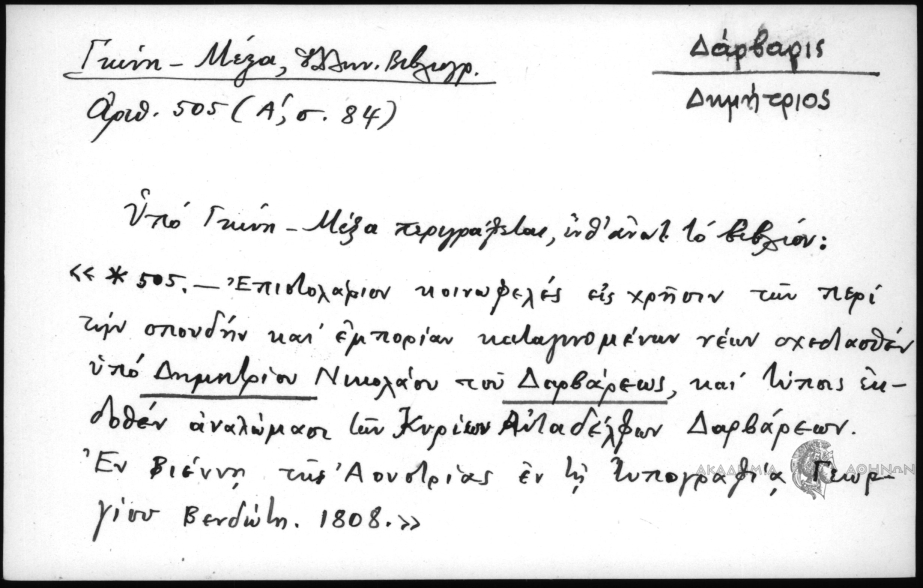 Γκίνη - Μέξα, Ἑλλην. Βιβλιογρ.
Ἀριθ. 505 (Α΄, σ. 84)
Δάρβαρις
Δημήτριος
Ὑπό Γκίνη - Μέξα περιγράφεται, ὑπ' ἀριθ. τό βιβλίον:
«* 505. — Ἐπιστολάριον κοινωφελές εἰς χρῆσιν τῶν περί
τήν σπουδήν καί ἐμπορίαν καταγινομένων νέων σχεδιασθέν
ὑπό Δημητρίου Νικολάου τοῦ Δαρβάρεως, καί τύποις ἐκ-
δοθέν ἀναλώμασι τῶν Κυρίων Αὐταδέλφων Δαρβάρεων.
Ἐν Βιέννῃ τῆς Ἀουστρίας ἐν τῇ τυπογραφίᾳ Γεωρ-
γίου Βενδώτη. 1808.»
ΑΚΑΔΗΜΙΑ ΑΘΗΝΩΝ